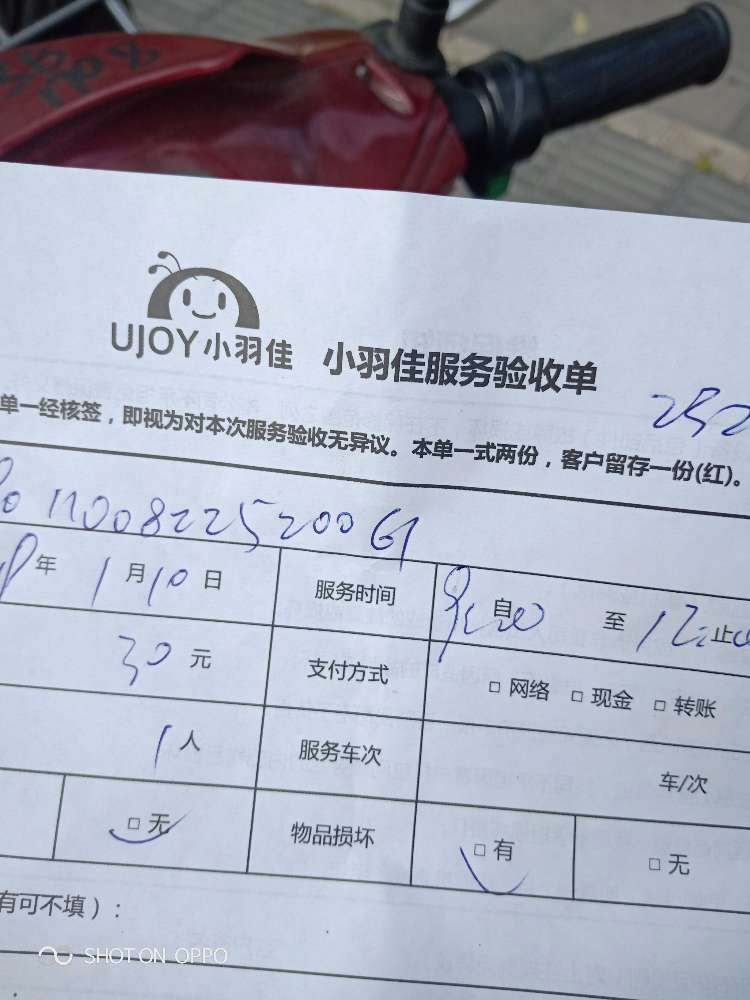 UJOY小羽佳 小羽佳服务验收单
252
单一经核签，即视为对本次服务验收无异议。本单一式两份，客户留存一份(红)。
年1月10日 服务时间 自 至 止
30元 支付方式 □ 网络 □ 现金 □ 转账
1人 服务车次 车/次
□ 无 物品损坏 □ 有 □ 无
有可不填）：
SHOT ON OPPO